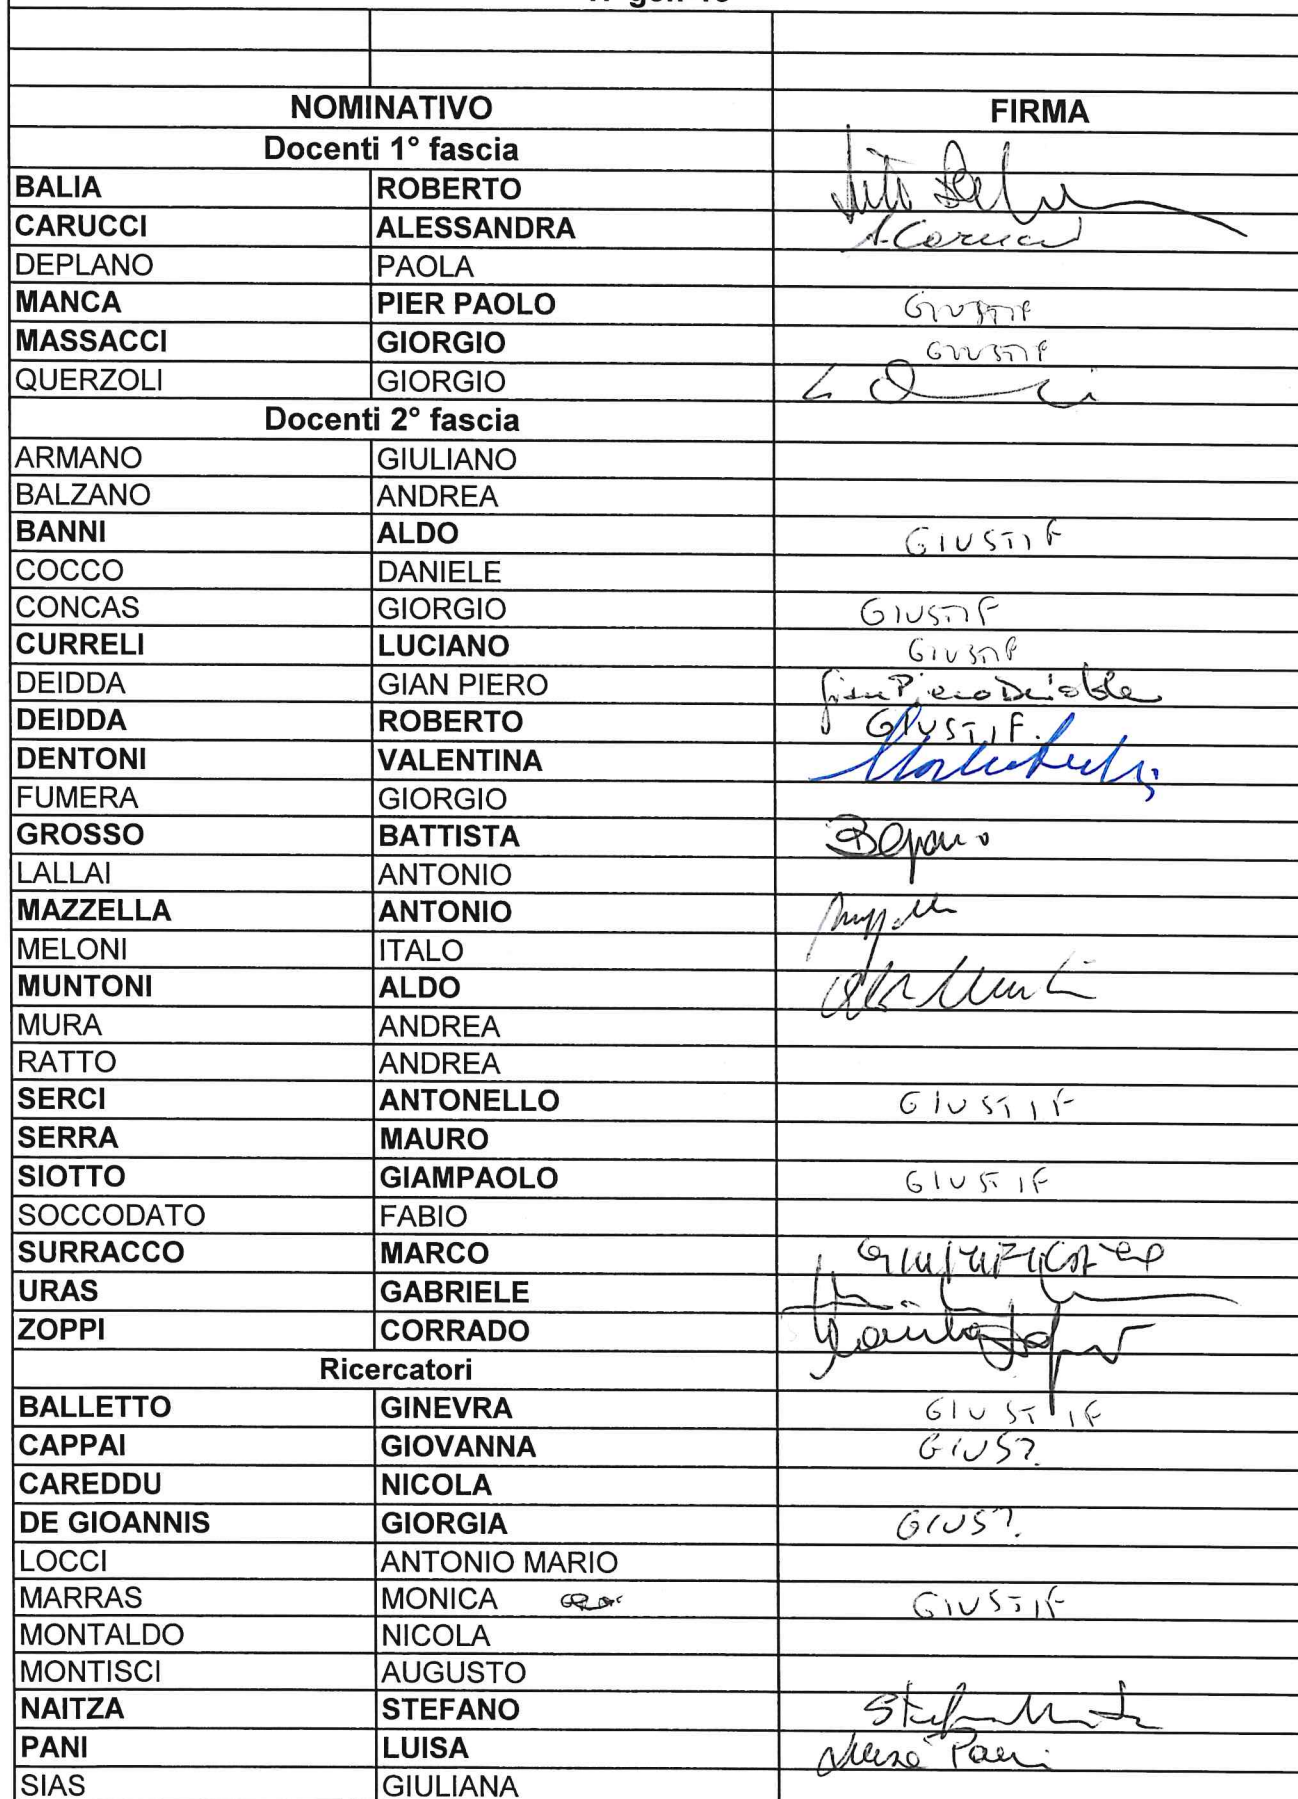 NOMINATIVO FIRMA
Docenti 1° fascia
BALIA ROBERTO
CARUCCI ALESSANDRA A. Carucci
DEPLANO PAOLA
MANCA PIER PAOLO GIUSTIF
MASSACCI GIORGIO GIUSTIF
QUERZOLI GIORGIO
Docenti 2° fascia
ARMANO GIULIANO
BALZANO ANDREA
BANNI ALDO GIUSTIF
COCCO DANIELE
CONCAS GIORGIO GIUSTIF
CURRELI LUCIANO GIUSTIF
DEIDDA GIAN PIERO Gian Piero Deidda
DEIDDA ROBERTO GIUSTIF.
DENTONI VALENTINA
FUMERA GIORGIO
GROSSO BATTISTA
LALLAI ANTONIO
MAZZELLA ANTONIO
MELONI ITALO
MUNTONI ALDO
MURA ANDREA
RATTO ANDREA
SERCI ANTONELLO GIUSTIF
SERRA MAURO
SIOTTO GIAMPAOLO GIUSTIF
SOCCODATO FABIO
SURRACCO MARCO
URAS GABRIELE
ZOPPI CORRADO
Ricercatori
BALLETTO GINEVRA GIUSTIF
CAPPAI GIOVANNA GIUST.
CAREDDU NICOLA
DE GIOANNIS GIORGIA GIUST.
LOCCI ANTONIO MARIO
MARRAS MONICA GIUSTIF
MONTALDO NICOLA
MONTISCI AUGUSTO
NAITZA STEFANO
PANI LUISA Luisa Pani
SIAS GIULIANA